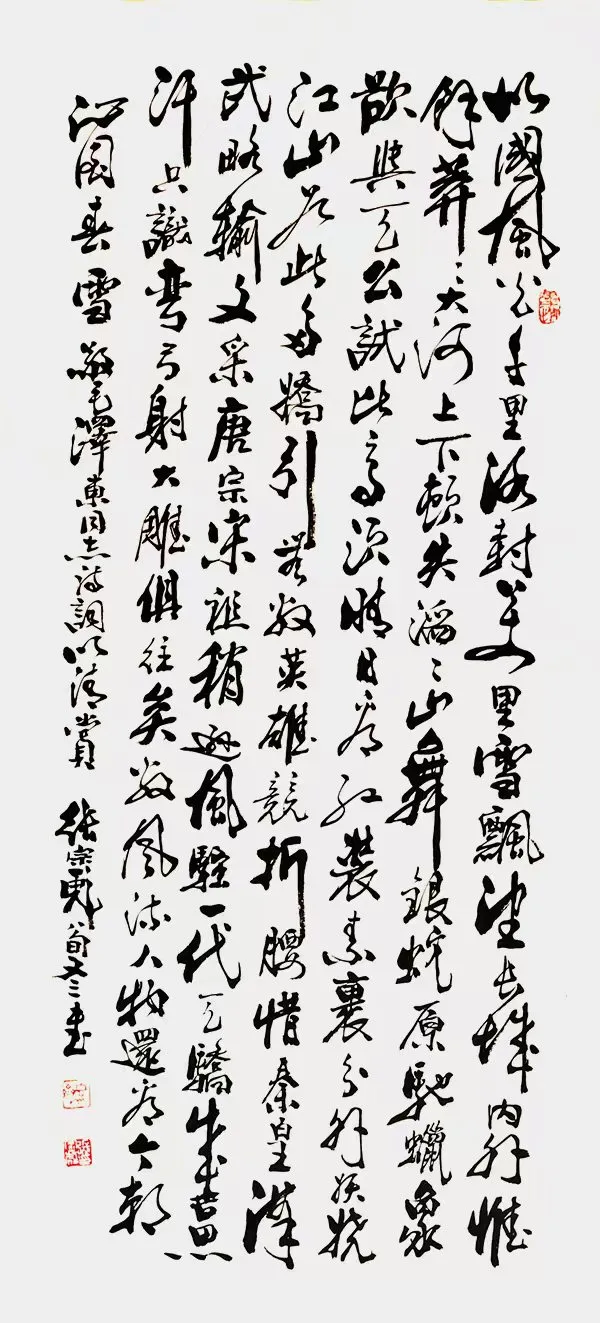 北國風光千里冰封萬里雪飄望長城內外惟
餘莽〻大河上下頓失滔〻山舞銀蛇原馳蠟象
欲與天公試比高須晴日看紅裝素裹分外妖嬈
江山如此多嬌引無數英雄競折腰惜秦皇漢
武略輸文采唐宗宋祖稍遜風騷一代天驕成吉思
汗只識彎弓射大雕俱往矣數風流人物還看今朝
沁園春雪 毛澤東同志詩詞以清賞 張宗 書